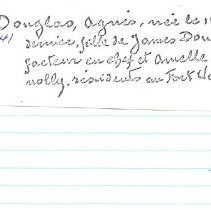 Douglas, Agnès, née le 11
41
dernier, fille de James Dou
facteur en chef et Amelle
nolly, résidents au Fort Va